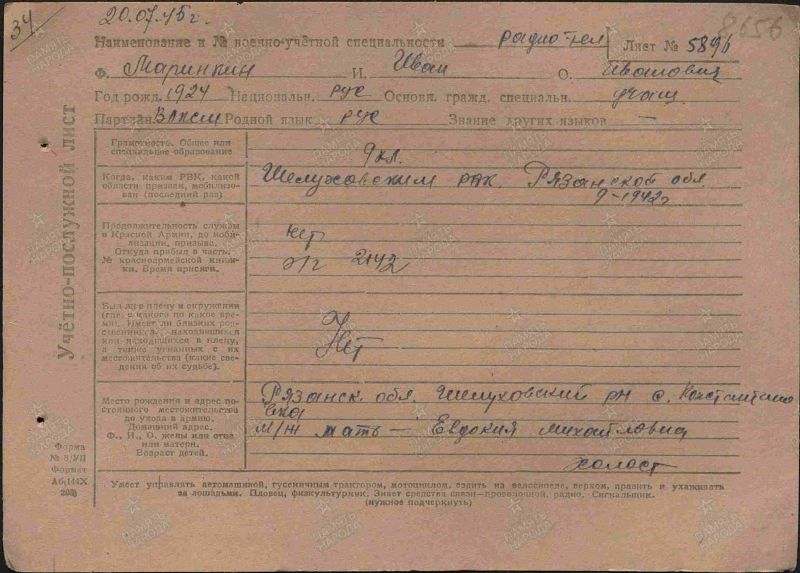 34
20.07.45г.
8656
Наименование и № военно-учётной специальности радио-тел Лист № 5896
Ф. Маринкин И. Иван О. Иванович
Год рожд. 1924 Национальн. рус Основн. гражд. специальн. учащ.
Партийн ВЛКСМ Родной язык рус Знание других языков —
Учётно-послужной лист
Грамотность. Общее или специальное образование
9 кл.
Когда, каким РВК, какой области призван, мобилизован (последний раз)
Шелуховским рвк. Рязанской обл.
9-1942г
Продолжительность службы в Красной Армии, до мобилизации, призыва. Откуда прибыл в часть. № красноармейской книжки. Время присяги.
нет
э/г 2142
Был ли в плену и окружении (где, с какого по какое время). Имеет ли близких родственников, находившихся или находящихся в плену, а также угнанных с их местожительства (какие сведения об их судьбе).
Нет
Место рождения и адрес постоянного местожительства до ухода в армию. Домашний адрес. Ф., И., О. жены или отца или матери. Возраст детей.
Рязанск. обл. Шелуховский рн с. Константино
вка
м/ж мать — Евдокия Михайловна
холост
Форма
№ 8/УП
Формат
А6,144Х
203)
Умеет управлять автомашиной, гусеничным трактором, мотоциклом, ездить на велосипеде, верхом, править и ухаживать
за лошадьми. Пловец, физкультурник. Знает средства связи—проволочной, радио. Сигнальщик.
(нужное подчеркнуть)
ПАМЯТЬ НАРОДА